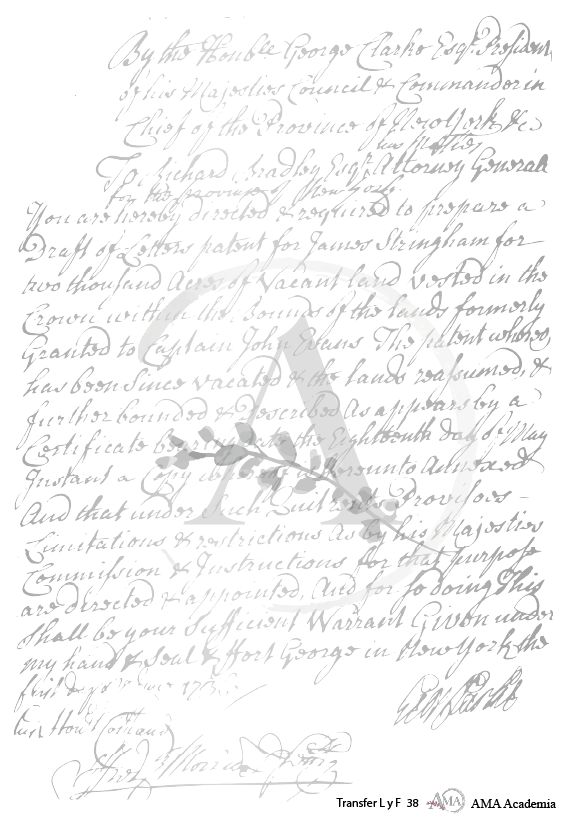 By the Honble George Clarke Esqr. President
of his Majesties Council & Commander in
Chief of the Province of New York &c
To Richard Bradley Esqr. his Matties Attorney Generall
for the Province of New York.
You are hereby directed & required to prepare a
Draft of Letters patent for James Stringham for
two thousand Acres of Vacant land vested in the
Crown within the Bounds of the lands formerly
Granted to Captain John Evans The patent whereof,
has been since vacated & the lands reassumed, &
further bounded & Described As appears by a
Certificate bearing date the Eighteenth day of May
Instant a Copy whereof is hereunto Annexed
And that under such Quitrents Provisoes –
Limitations & restrictions As by his Majesties
Commission & Instructions for that purpose
are directed & appointed, And for so doing This
shall be your sufficient Warrant Given under
my hand & Seal at Fort George in New York the
first day of
Geo Clarke
his Honrs Command
Fred Morris
Transfer L y F 38 AMA AMA Academia